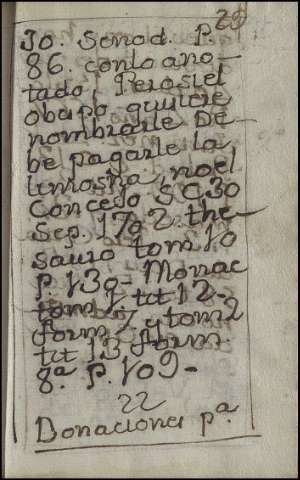 28
Io. Senod. P.
86. con lo ano-
tado, Pero si el
obispo quiciere
nombrarle De-
be pagarle la
limosna, no el
Concejo S.C. 30
Sep. 1702. the-
sauro tom 10
P. 139- Monac
tom 1 tit 12-
form 7. y tom 2
tit 13 form.
8.ª P. 109-
22
Donaciones p.ª